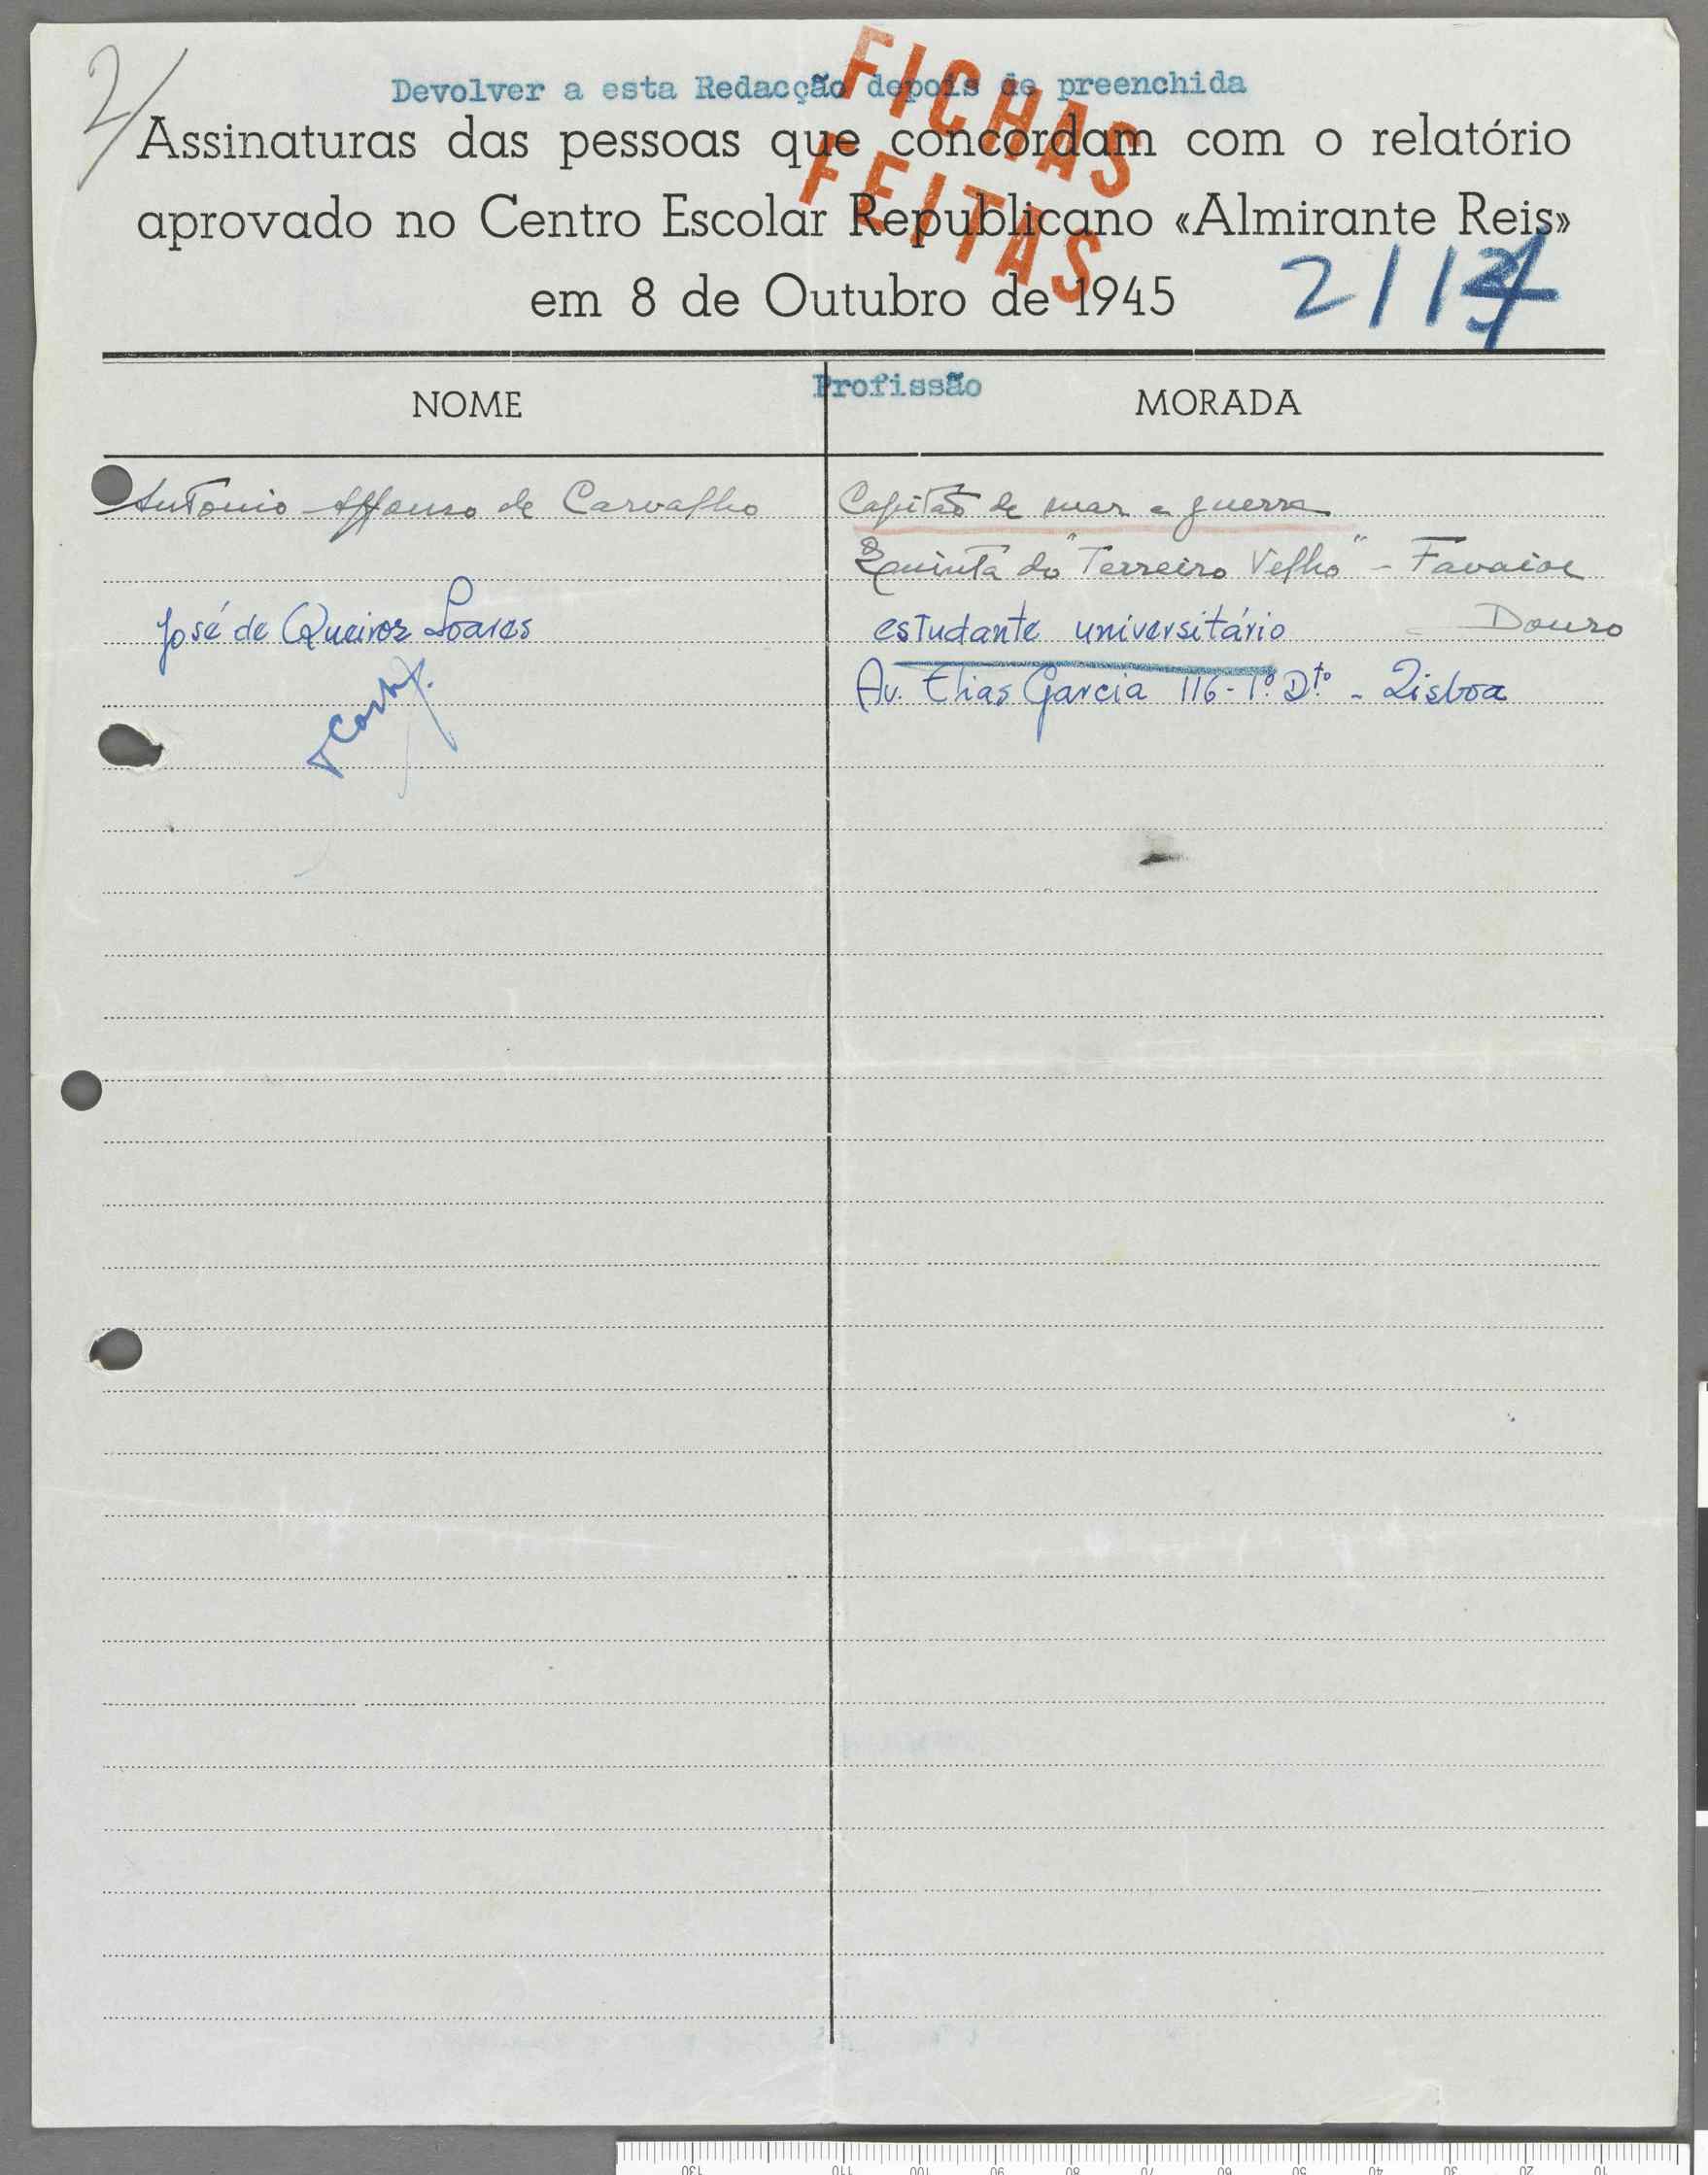 2/
Devolver a esta Redacção depois de preenchida
FICHAS
FEITAS
Assinaturas das pessoas que concordam com o relatório
aprovado no Centro Escolar Republicano «Almirante Reis»
em 8 de Outubro de 1945
Profissão
NOME MORADA
Antonio Affonso de Carvalho Capitão de mar e guerra
Quinta do "Terreiro Velho" - Favaios
Douro
José de Queiroz Soares estudante universitário
Av. Elias Garcia 116-1º Dto - Lisboa
130 110 100 90 80 70 60 50 40 30 20 10